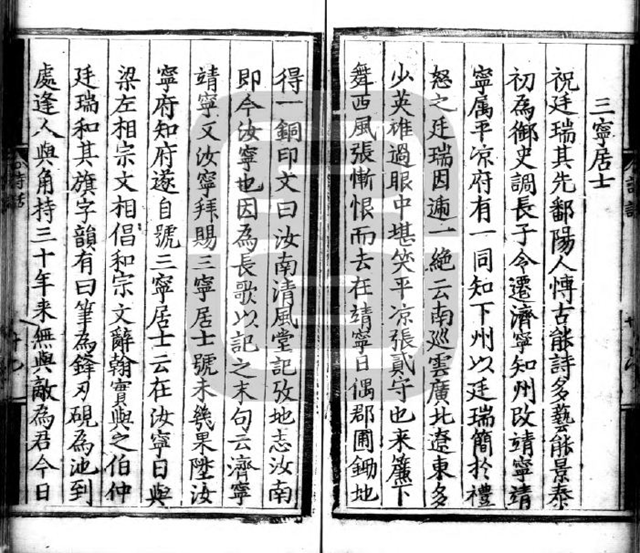 三寧居士
祝廷瑞其先鄱陽人愽古能詩多藝能景泰
初為御史調長子令遷濟寧知州改靖寧靖
寧属平凉府有一同知下州以廷瑞簡於禮
怒之廷瑞因逓一絶云南廵雲廣北遼東多
少英雄過眼中堪笑平凉張貳守也来簾下
舞西風張慚恨而去在靖寧日偶郡圃鋤地
得一銅印文曰汝南清風堂記攷地志汝南
即今汝寧也因為長歌以記之末句云濟寧
靖寧又汝寧拜賜三寧居士號未幾果陞汝
寧府知府遂自號三寧居士云在汝寧日與
梁左相宗文相倡和宗文辭翰實與之伯仲
廷瑞和其旗字韻有曰筆為鋒刃硯為池到
處逢人與角持三十年来無與敵為君今日